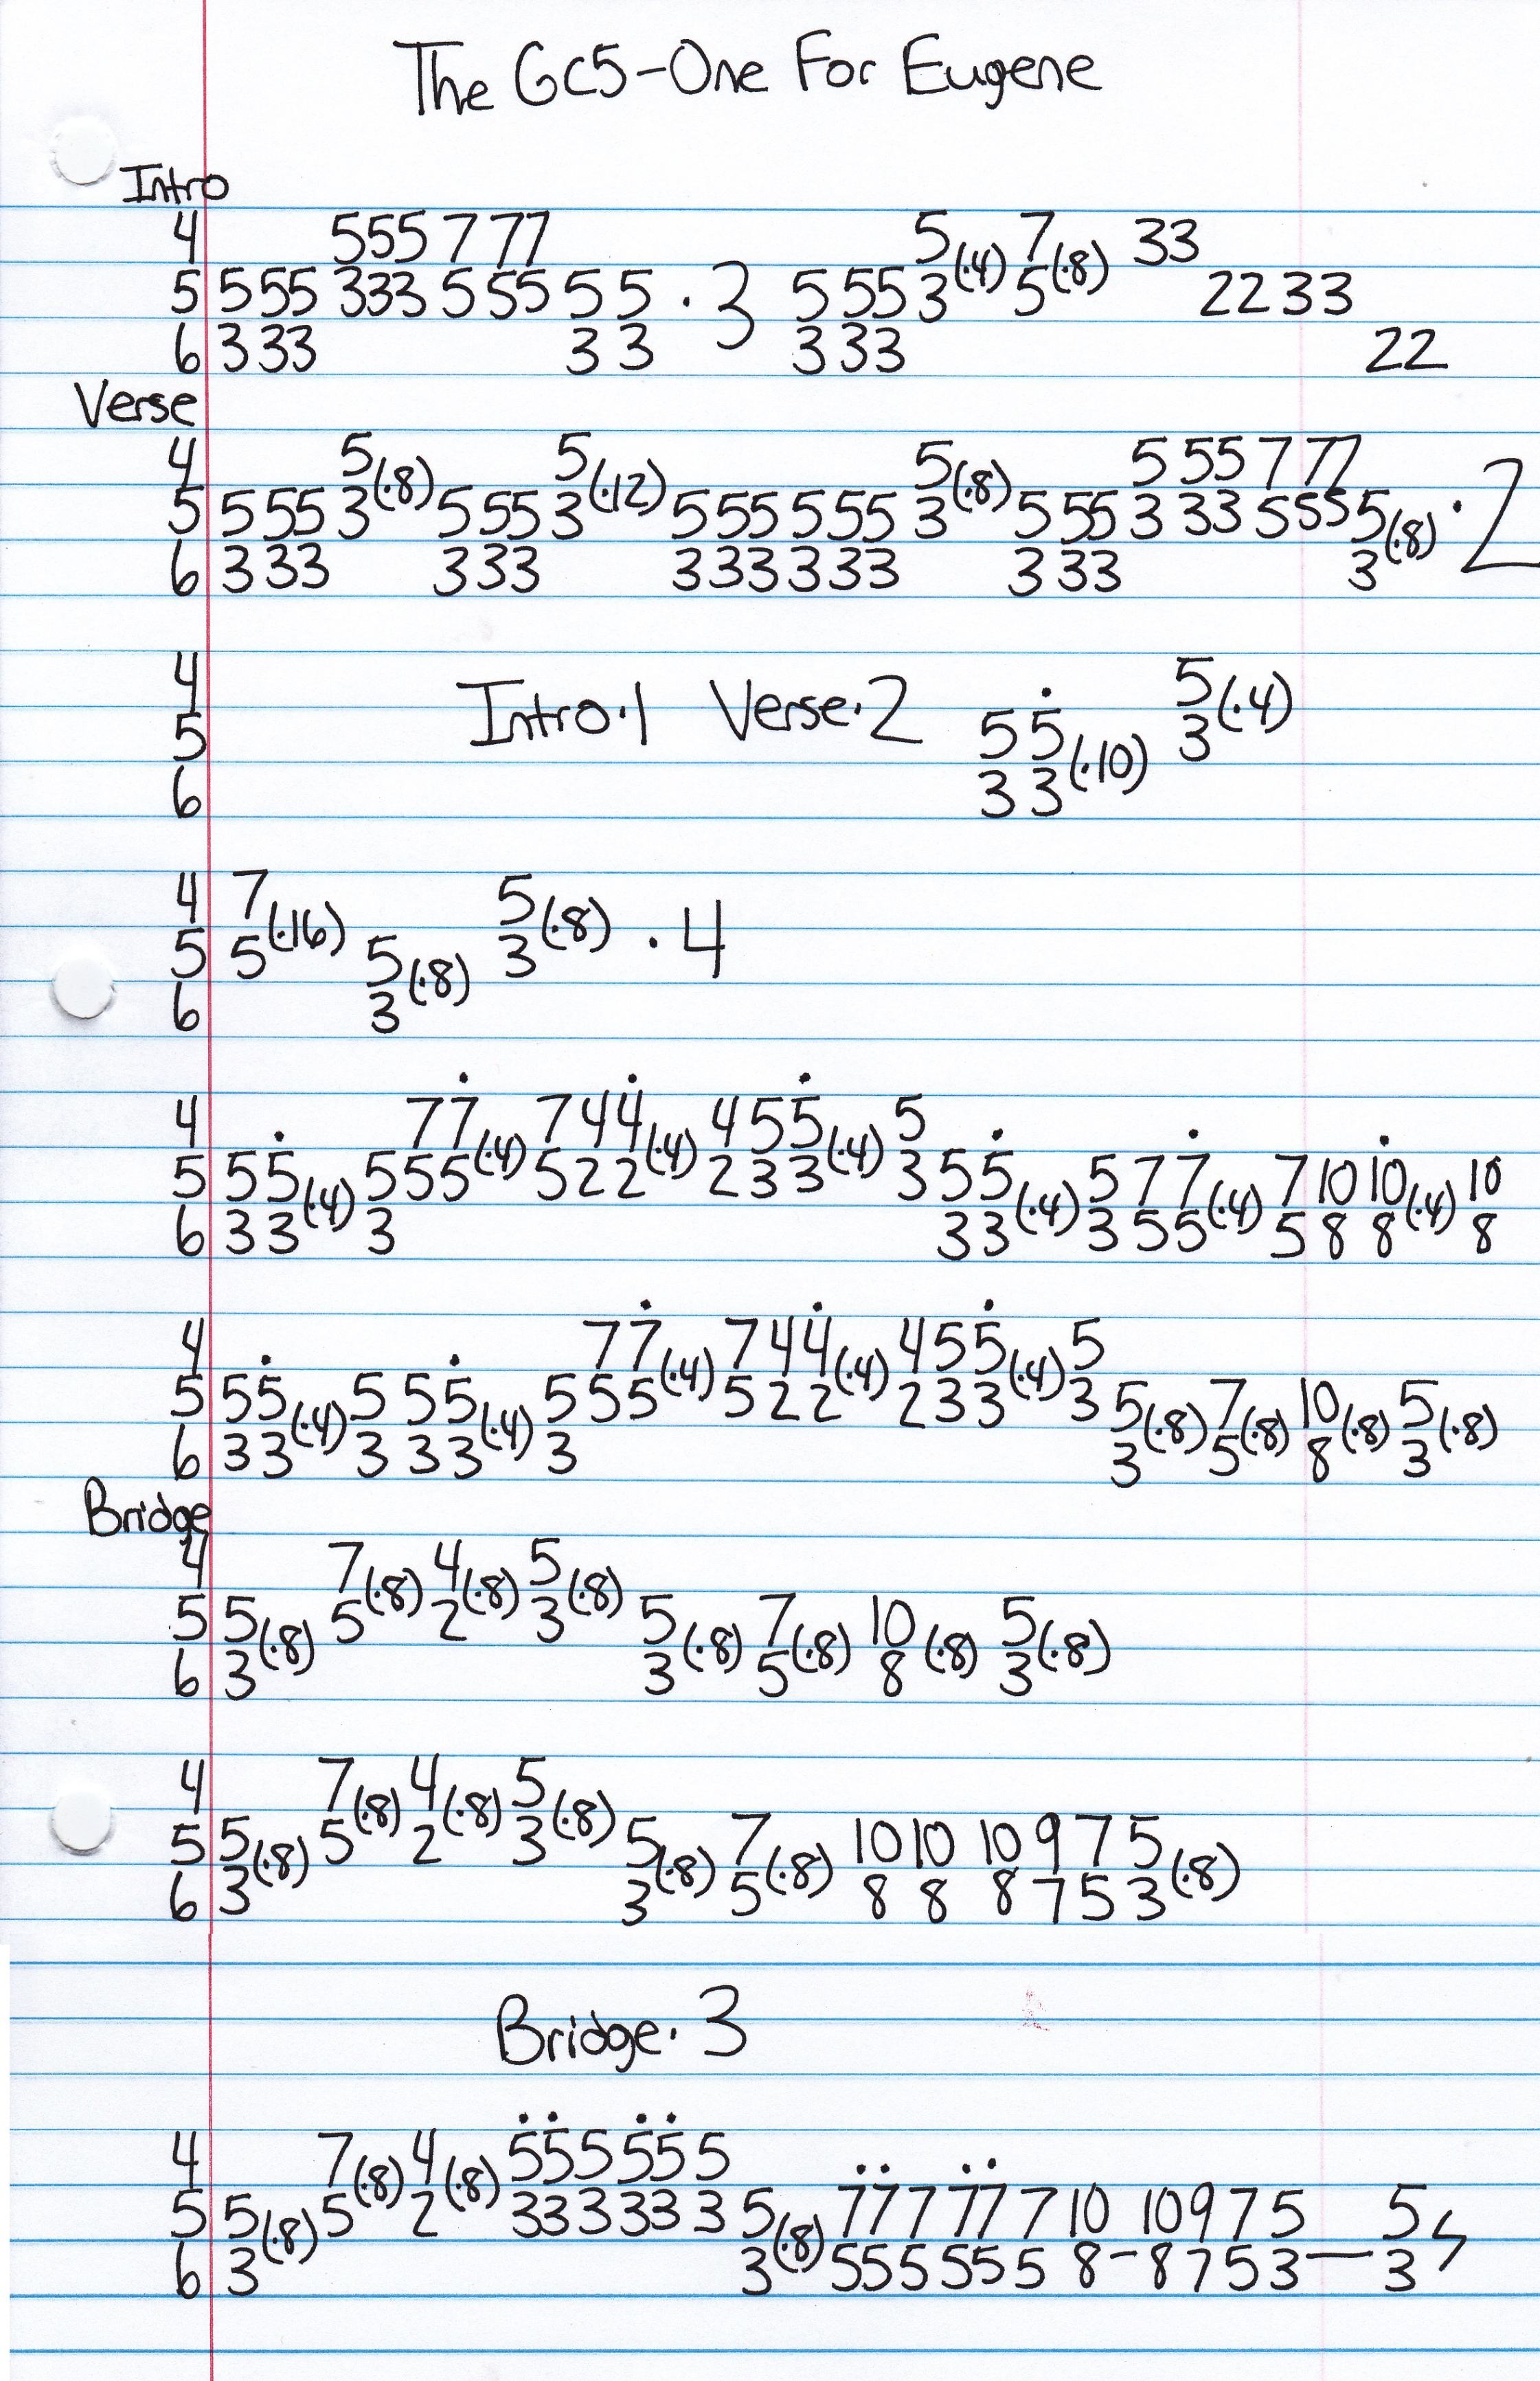 The GC5-One For Eugene
Intro
4 555 7 77 5(·4) 7(·8) 33
5 5 55 333 5 55 5 5 · 3 5 55 3 5 22 33
6 3 33 3 3 3 33 22
Verse
4 5(·8) 5(·12) 5(·8) 5 55 7 77
5 5 55 3 5 55 3 555 555 3 5 55 3 33 5 55 5(·8) · 2
6 3 33 3 33 333 333 3 33 3
4 5(·4)
5 Intro·1 Verse·2 5 5(·10) 3
6 3 3
4 7(·16) 5(·8) · 4
5 5 5(·8) 3
6 3
4 77(·4) 744(·4) 455(·4) 5
5 55(·4) 555 522 233 3 55(·4) 5 77(·4) 7 10 10(·4) 10
6 33 3 33 3 55 5 8 8 8
4 77(·4) 744(·4) 455(·4) 5
5 55(·4) 5 55(·4) 555 522 233 3 5(·8) 7(·8) 10(·8) 5(·8)
6 33 3 33 3 3 5 8 3
Bridge
4 7(·8) 4(·8) 5(·8)
5 5(·8) 5 2 3 5(·8) 7(·8) 10(·8) 5(·8)
6 3 3 5 8 3
4 7(·8) 4(·8) 5(·8)
5 5(·8) 5 2 3 5(·8) 7(·8) 10 10 10 9 7 5(·8)
6 3 3 5 8 8 8 7 5 3
Bridge·3
4 7(·8) 4(·8) 555 555
5 5(·8) 5 2 333 333 5(·8) 777 777 10 10 9 7 5 5
6 3 3 555 555 8-8 7 5 3— 3